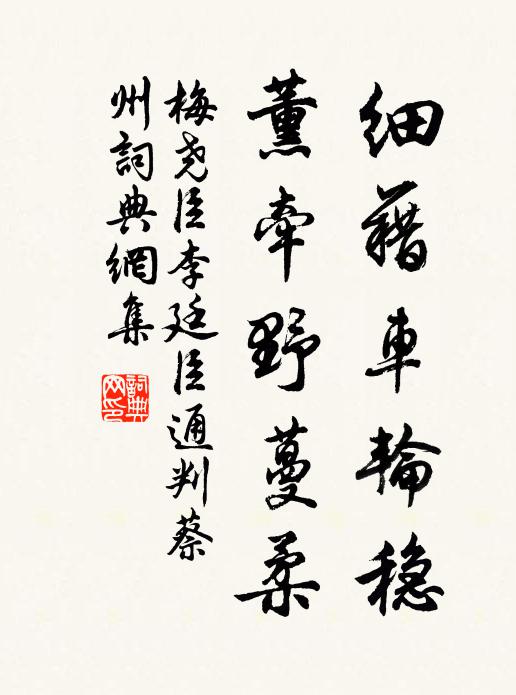 细藉車輪穏
薰牽野蔓柔
梅尧臣李廷臣通判蔡
州詞典網集
詞典
网印